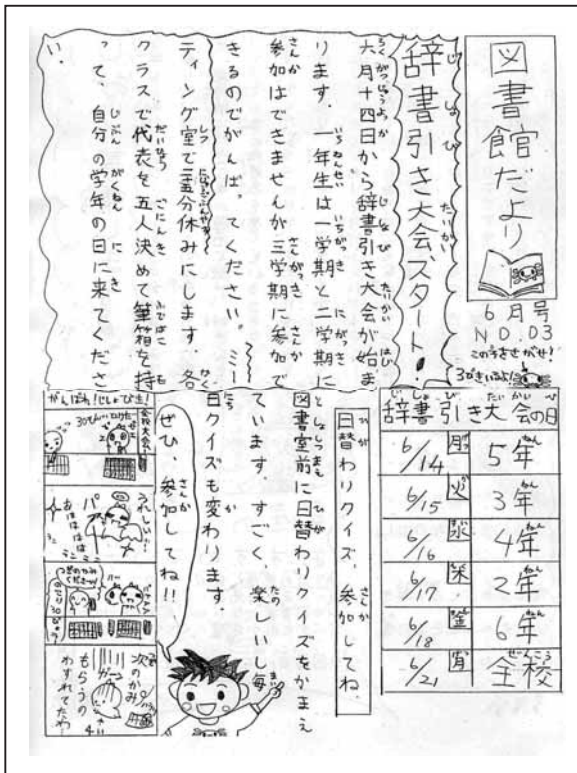 図書館だより
6月号
NO.03
このうさぎさがせ!
3びきいるよ!
辞書引き大会、スタート!
六月十四日から辞書引き大会が始ま
ります。一年生は一学期と二学期に
参加はできませんが三学期に参加で
きるのでがんばってください。ミー
ティング室で二十分休みにします。各
クラスで代表を五人決めて筆箱を持
って、自分の学年の日に来てくださ
い。
辞書引き大会の日
6/14 月 5年
6/15 火 3年
6/16 水 4年
6/17 木 2年
6/18 金 6年
6/21 月 全校
日替わりクイズ、参加してね
図書室前に日替わりクイズをかまえ
ています。すごく、楽しいし毎
日クイズも変わります。
ぜひ、参加してね!!
がんばれ!じしょびき!
全校大会
うれしい!
あははははは
つぎのかみくださーい
次のかみもらうのわすれてたわ